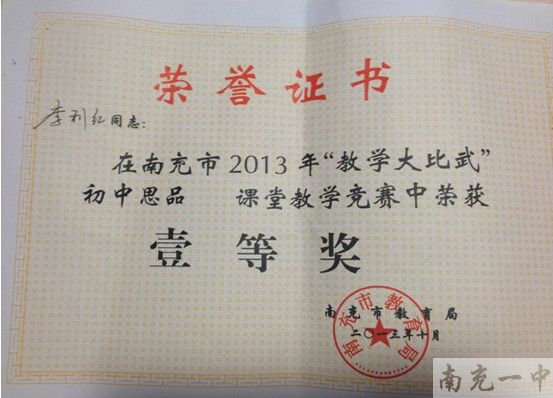 荣誉证书
李利红同志：
在南充市2013年“教学大比武”
初中思品 课堂教学竞赛中荣获
壹等奖
南充市教育局
二〇一三年十月
南充市教育局
南充一中